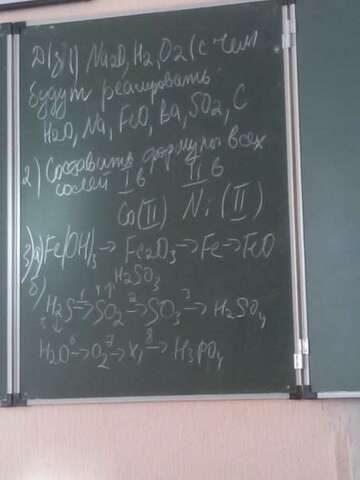 Д/з 1) Na2O, H2, O2 (с чем
будут реагировать:
H2O, Na, FeO, Ba, SO2, C
2) Составить формулы всех
солей I в II в
Co(II) Ni(II)
3) а) Fe(OH)3 → Fe2O3 → Fe → FeO
б) H2SO3
4↑
H2S 1→ SO2 2→ SO3 3→ H2SO4
5↓
H2O 6→ O2 7→ x, 8→ H3PO4